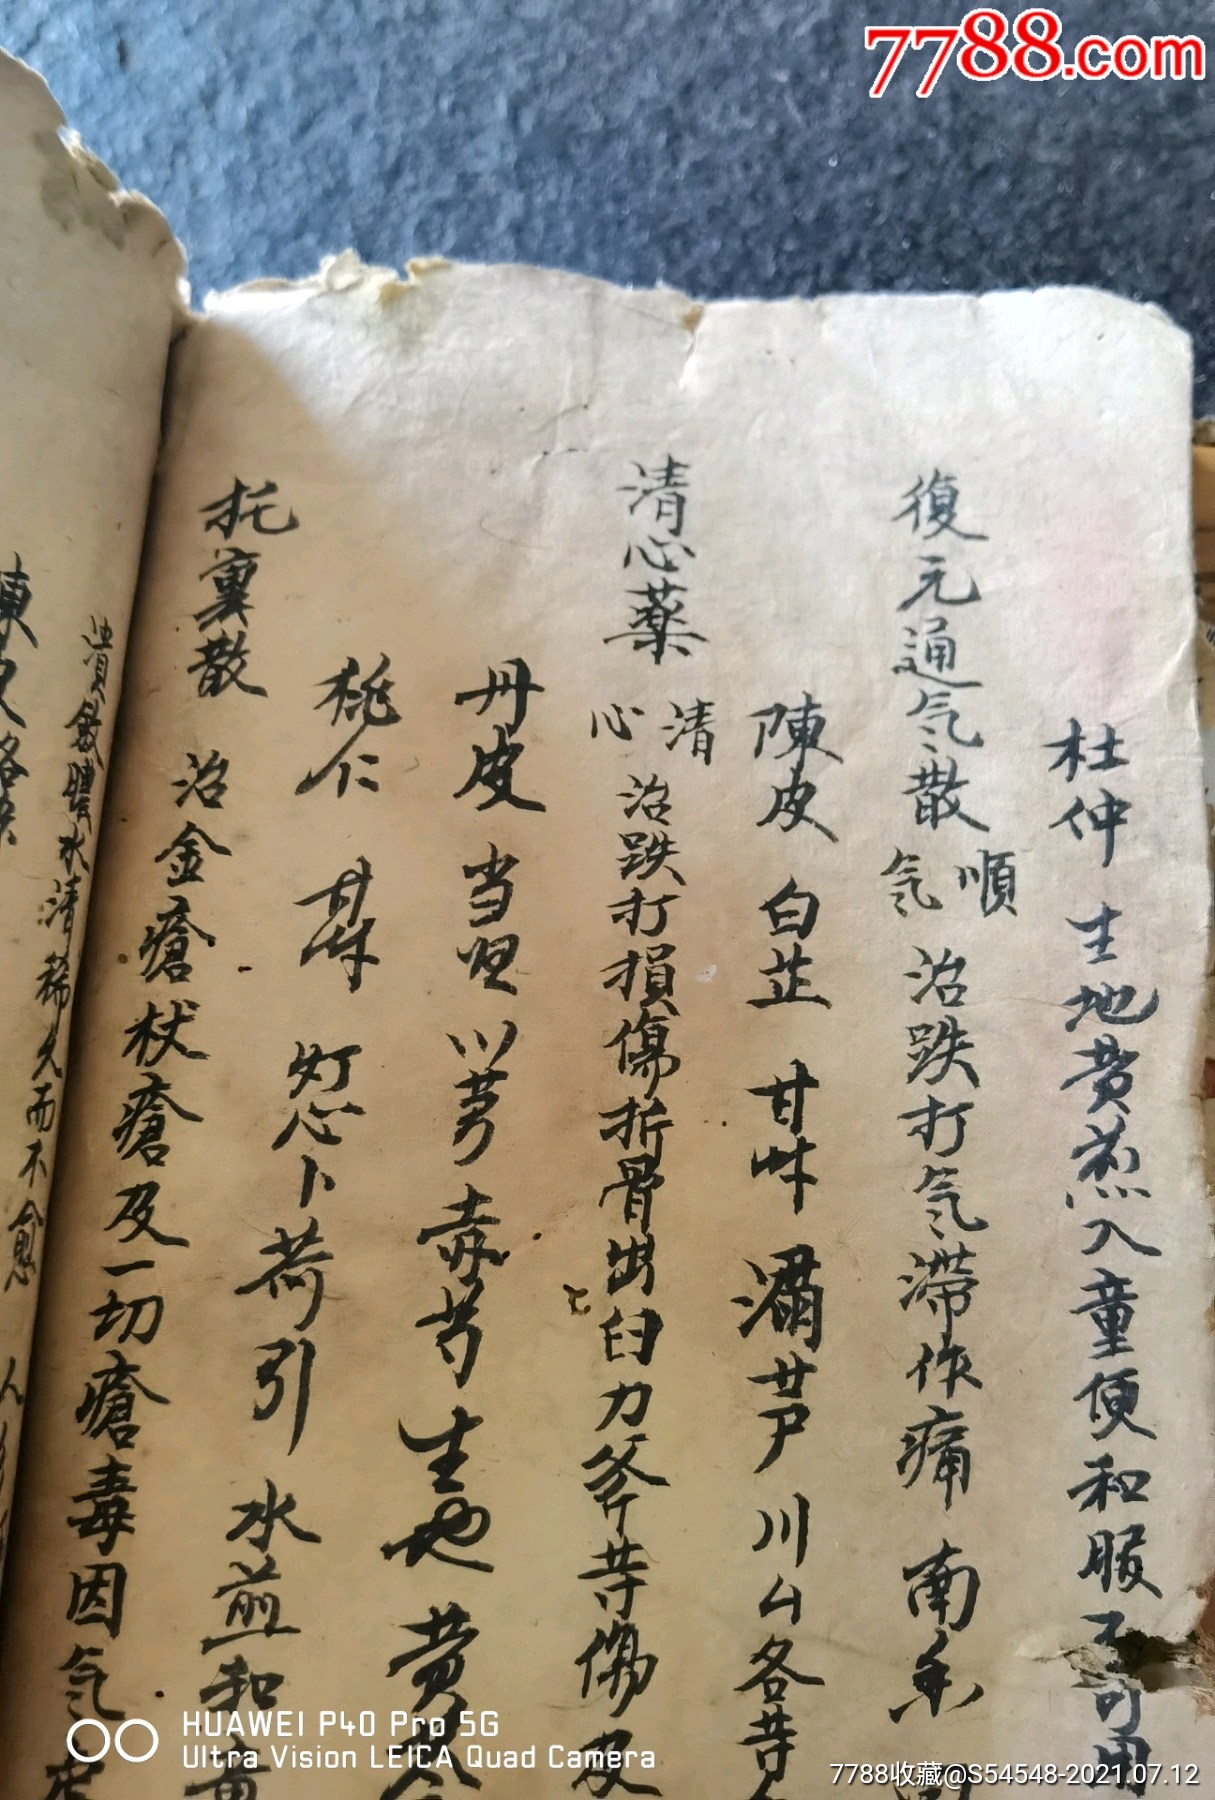 7788.com
杜仲 生地黄煎入童便和服不可用
復元通气散 順气 治跌打气滞作痛 南
陳皮 白芷 甘草 漏芦 川山各等
清心薬 清心 治跌打損傷折骨出臼刀斧等傷及
丹皮 当归 川芎 赤芍 生地 黄
桃仁 甘草 灯心 卜荷引 水煎和童
托裏散 治金瘡杖瘡及一切瘡毒因气
潰敛膿水清稀久而不愈 人
陳皮各
HUAWEI P40 Pro 5G
Ultra Vision LEICA Quad Camera
7788收藏@S54548-2021.07.12